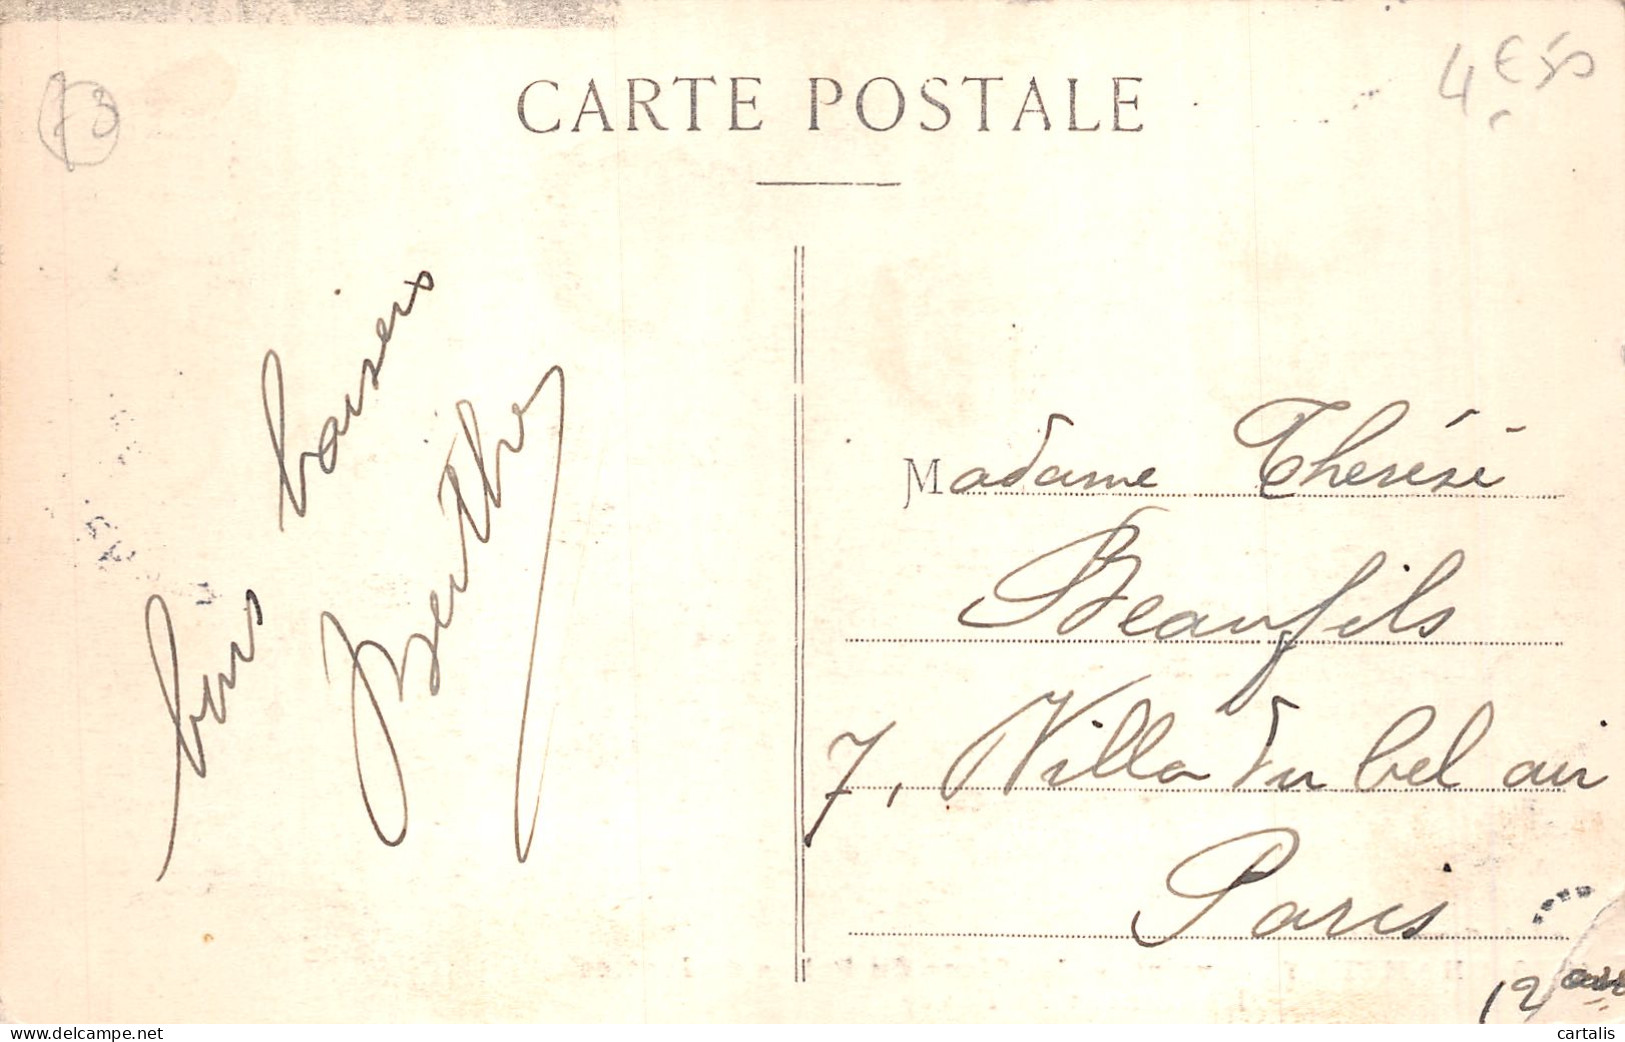 CARTE POSTALE
73
4€50
bons baisers
Berthe
Madame Thérèse
Beaufils
7, Villa du bel air
Paris
12
cartalis
www.delcampe.net